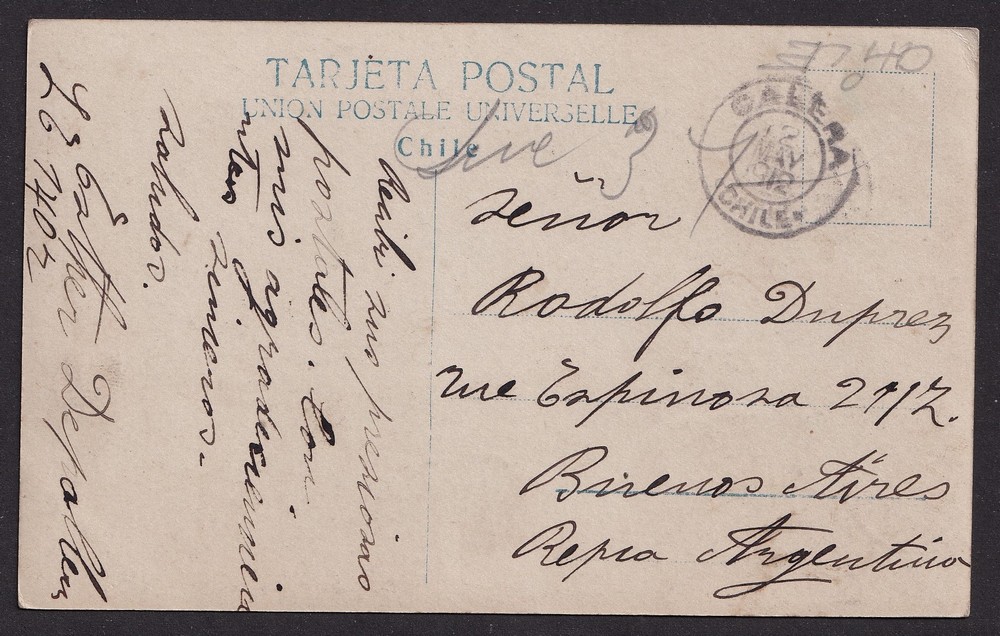 TARJETA POSTAL
UNION POSTALE UNIVERSELLE
Chile
CALERA
CHILE
Señor
Rodolfo Duprez
rue Espinosa 2112.
Buenos Aires
Repca Argentina
Recibi sus preciosas
postales. Con
mis agradecimien
tos sinceros.
Saludos.
Esther Depallens